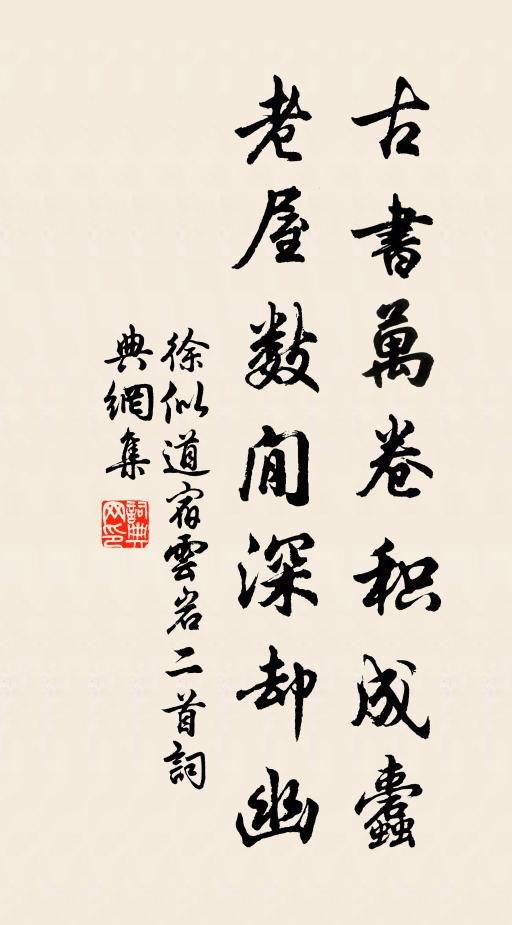 古書萬卷积成蠹
老屋数间深却幽
徐似道宿雲岩二首詞
典網集
詞典网印